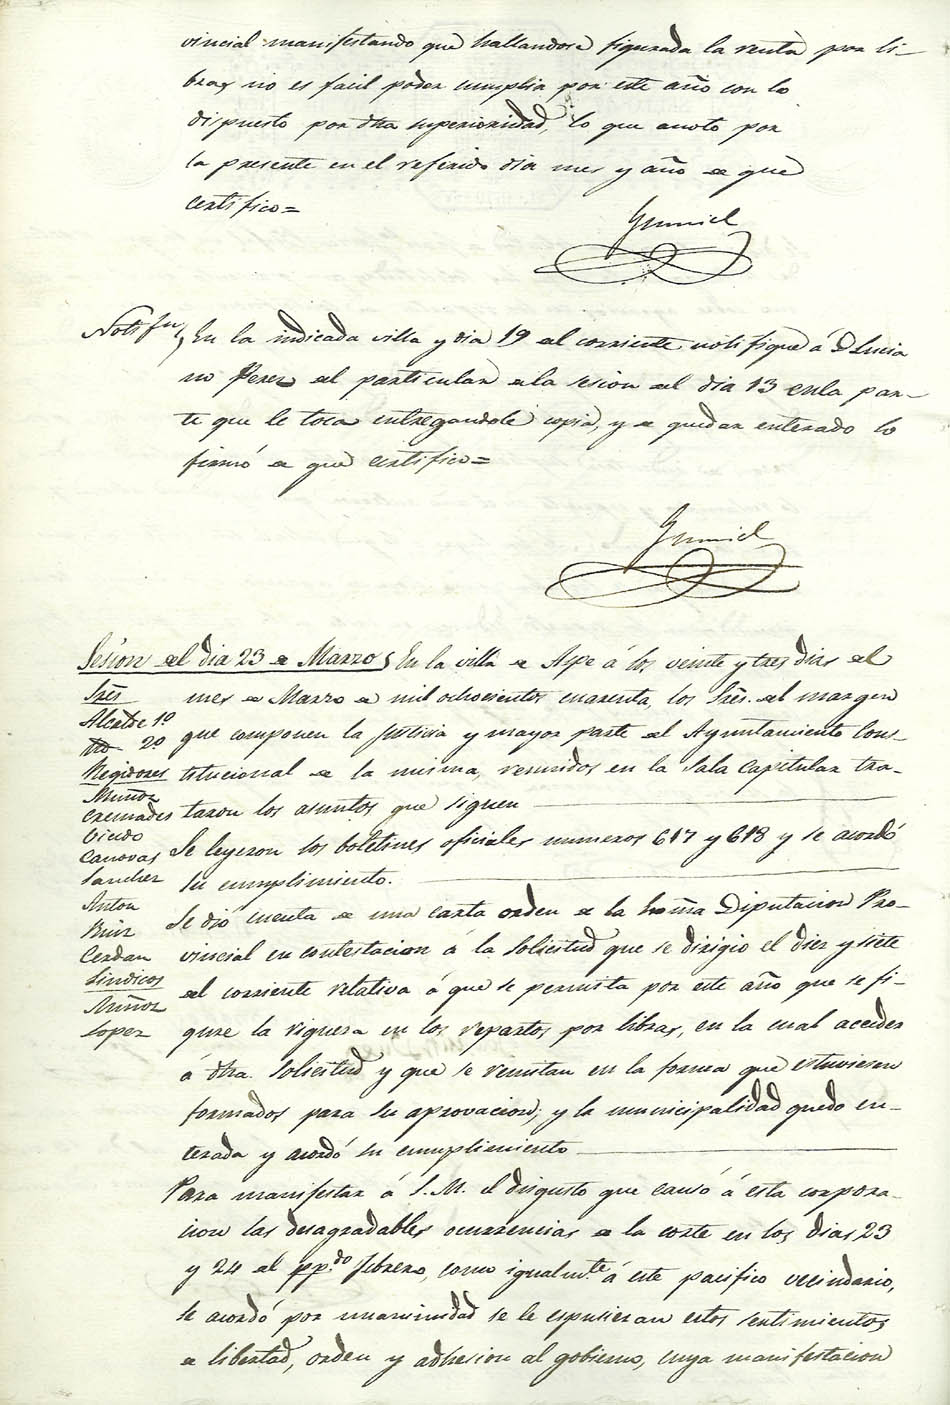 vincial manifestando que hallandose figurada la renta por li-
bras no es facil poder cumplir por este año con lo
dispuesto por dha superioridad, lo que anoto por
la presente en el referido dia mes y año de que
certifico=
Gumiel
Notifn, En la indicada villa y dia 19 del corriente notifique á D Lucia
no Perez el particular de la sesion del dia 13 en la par-
te que le toca entregandole copia, y de quedar enterado lo
firmó de que certifico=
Gumiel
Sesion del dia 23 de Marzo, En la villa de Aspe á los veinte y tres dias del
mes de Marzo de mil ochocientos cuarenta, los Sres. del margen
que componen la Justicia y mayor parte del Ayuntamiento Cons-
titucional de la misma, reunidos en la Sala Capitular tra-
taron los asuntos que siguen
Se leyeron los boletines oficiales numeros 617 y 618 y se acordó
su cumplimiento.
Se dió cuenta de una carta orden de la Diputacion Pro-
vincial en contestacion á la Solicitud que se dirigio el diez y siete
del corriente relativa á que se permita por este año que se fi-
gure la riqueza en los repartos por libras, en la cual acceden
á dha. Solicitud y que se remitan en la forma que estuviesen
formados para su aprovacion; y la municipalidad quedo en-
terada y acordó su cumplimiento
Para manifestar á S.M. el disgusto que causó á esta corpora-
cion las desagradables ocurrencias de la corte en los dias 23
y 24 del pp.do febrero, como igualm.te á este pacifico vecindario,
se acordó por unanimidad se le espusieran estos sentimientos
de libertad, orden y adhesion al gobierno, cuya manifestacion
Sres
Alcalde 1º
2º
Regidores
Muñoz
Cremades
Canovas
Sanchez
Anton
Ruiz
Cerdan
Sindicos
Muñoz
Lopez